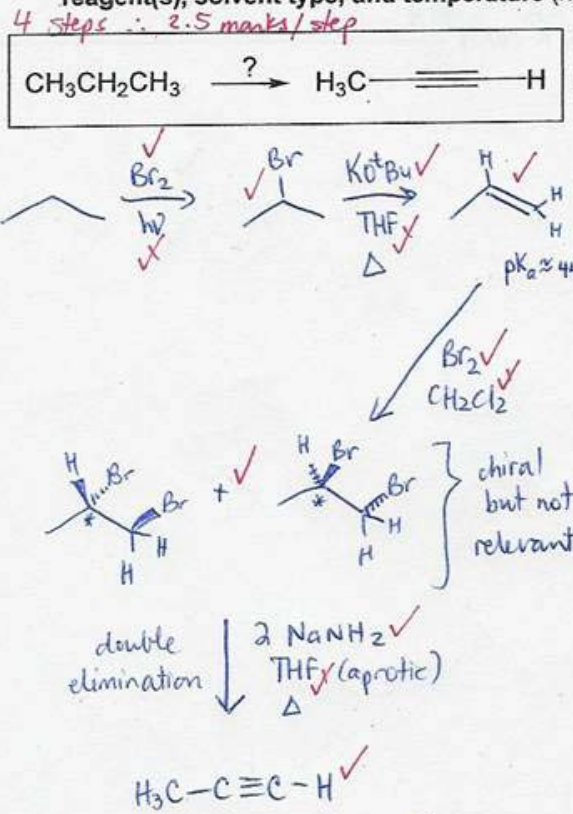 reagent(s), solvent type, and temperature
4 steps ∴ 2.5 marks/step
CH3CH2CH3 ? H3C H
Br2
hν
Br
KOtBu
THF
Δ
H
H
H
pKa ≈ 44
Br2
CH2Cl2
H
Br
Br
*
H
H
+
H
Br
Br
*
H
H
chiral
but not
relevant
double
elimination
2 NaNH2
THF (aprotic)
Δ
H3C-C≡C-H